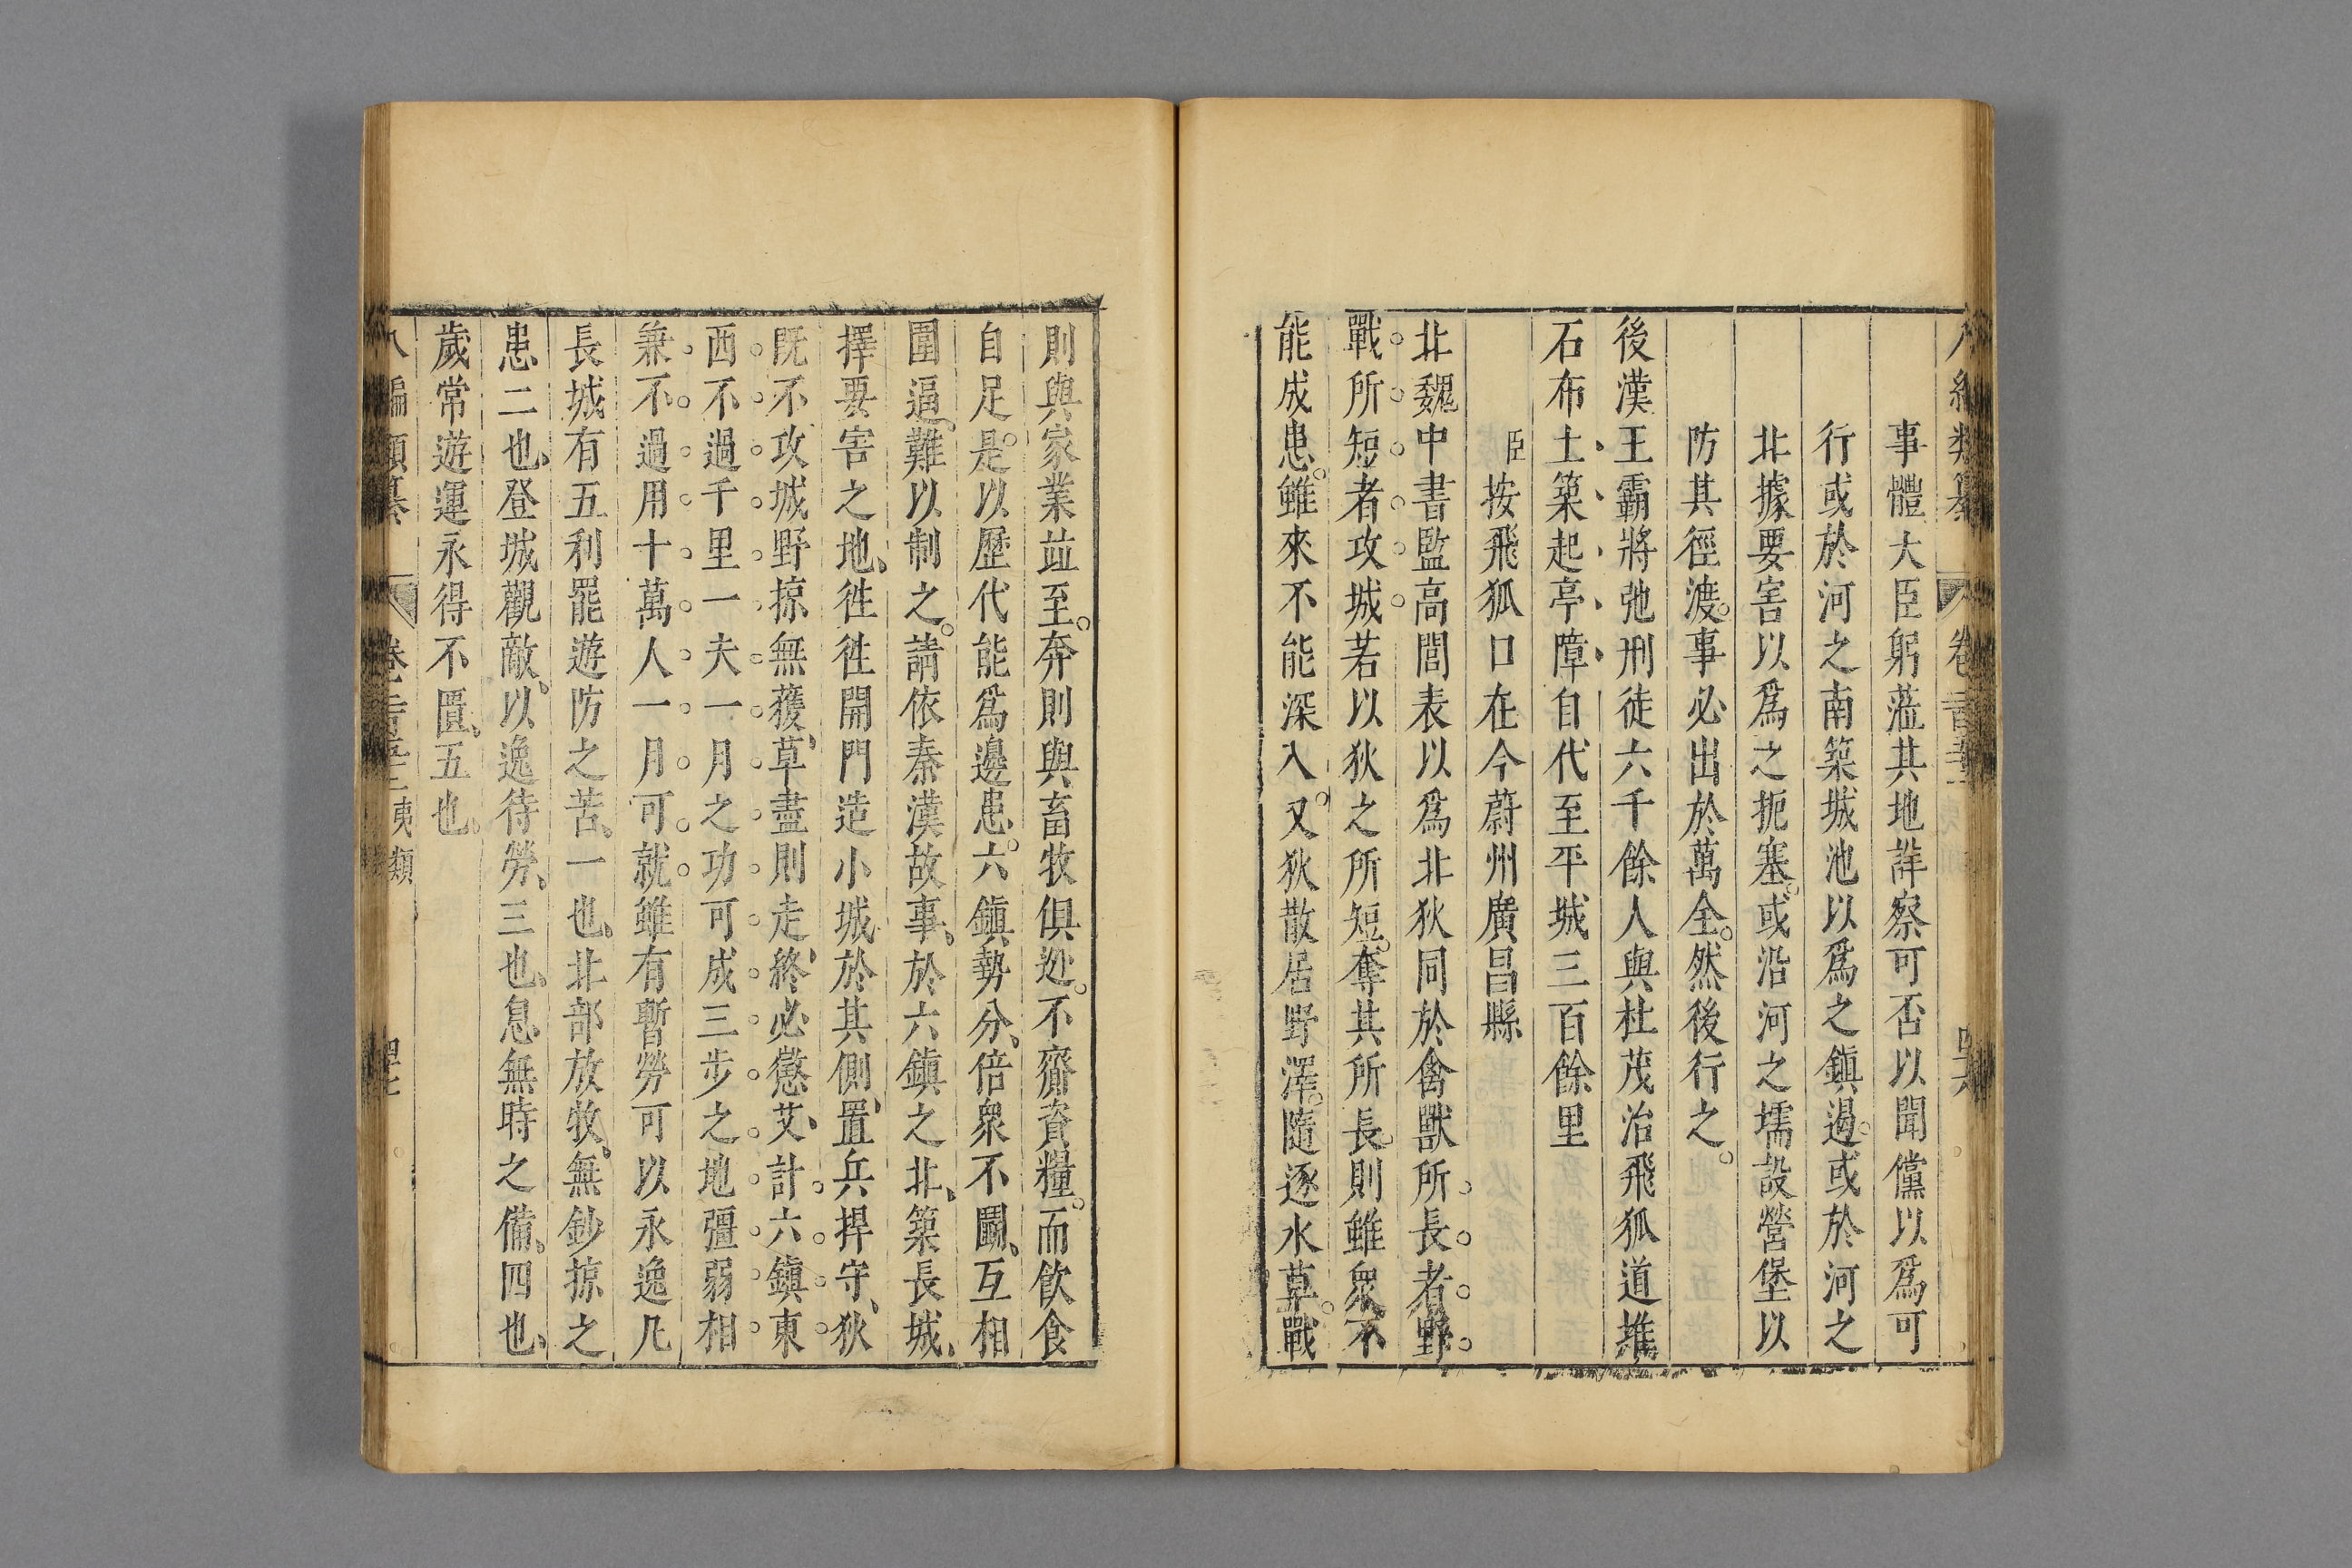 事體大臣躬蒞其地詳察可否以聞儻以爲可
行或於河之南築城池以爲之鎮遏或於河之
北據要害以爲之扼塞或沿河之壖設營堡以
防其徑渡事必出於萬全然後行之
後漢王霸將弛刑徒六千餘人與杜茂治飛狐道堆
石布土築起亭障自代至平城三百餘里
臣按飛狐口在今蔚州廣昌縣
北魏中書監高閭表以爲北狄同於禽獸所長者野
戰所短者攻城若以狄之所短奪其所長則雖衆不
能成患雖來不能深入又狄散居野澤隨逐水草戰
則與家業並至奔則與畜牧俱迯不齎資糧而飲食
自足是以歷代能爲邊患六鎮勢分倍衆不鬭互相
圍逼難以制之請依秦漢故事於六鎮之北築長城
擇要害之地徃徃開門造小城於其側置兵捍守狄
既不攻城野掠無獲草盡則走終必懲艾計六鎮東
西不過千里一夫一月之功可成三步之地彊弱相
兼不過用十萬人一月可就雖有暫勞可以永逸凡
長城有五利罷遊防之苦一也北部放牧無鈔掠之
患二也登城觀敵以逸待勞三也息無時之備四也
歲常遊運永得不匱五也
八編類纂